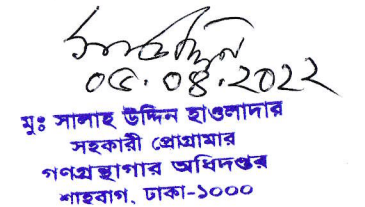 ০৫.০৪.২০২২
মুঃ সালাহ উদ্দিন হাওলাদার
সহকারী প্রোগ্রামার
গণগ্রন্থাগার অধিদপ্তর
শাহবাগ, ঢাকা-১০০০